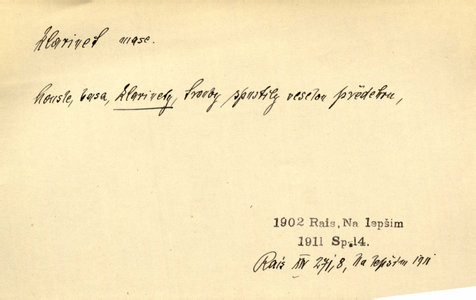 klarinet masc.
housle, basa, klarinety, trouby spustily veselou předehru,
1902 Rais, Na lepším
1911 Sp.14.
Rais XIV 271,8, Na lepším 1911